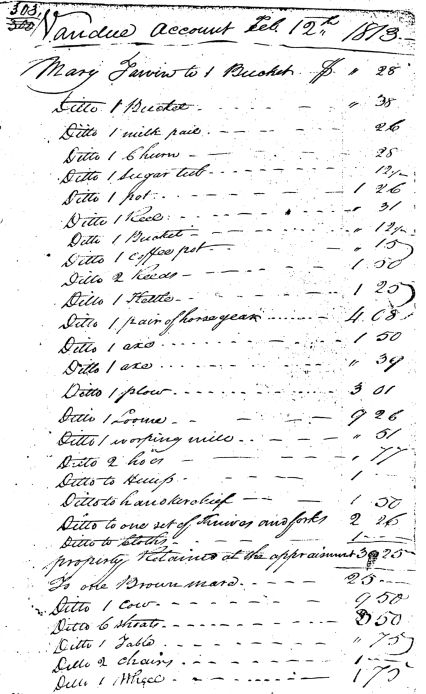 303
300
Vandue account Feb. 12th 1813.
Mary Tarvin to 1 Bucket $ " 28
Ditto 1 Bucket " 38
Ditto 1 milk pail 26
Ditto 1 Churn 28
Ditto 1 sugar tub 12½
Ditto 1 pot 1 26
Ditto 1 Reel " 31
Ditto 1 Bucket " 12½
Ditto 1 coffee pot " 15
Ditto 2 Reeds 1 50
Ditto 1 Kettle 1 25
Ditto 1 pair of horse gears 4 08
Ditto 1 axe 1 50
Ditto 1 axe " 39
Ditto 1 plow 3 01
Ditto 1 Loome 9 26
Ditto 1 worping mill " 51
Ditto 2 hoes " 77
Ditto to Hemp 1
Ditto to handkerchief 1 50
Ditto to one set of Knives and forks 2 26
Ditto to 1
property Retained at the appraisment 25
To one Brown mare 25
Ditto 1 cow 9 50
Ditto 6 shoats 50
Ditto 1 Table " 75
Ditto 2 chairs 1
Ditto 1 Wheel 1 75